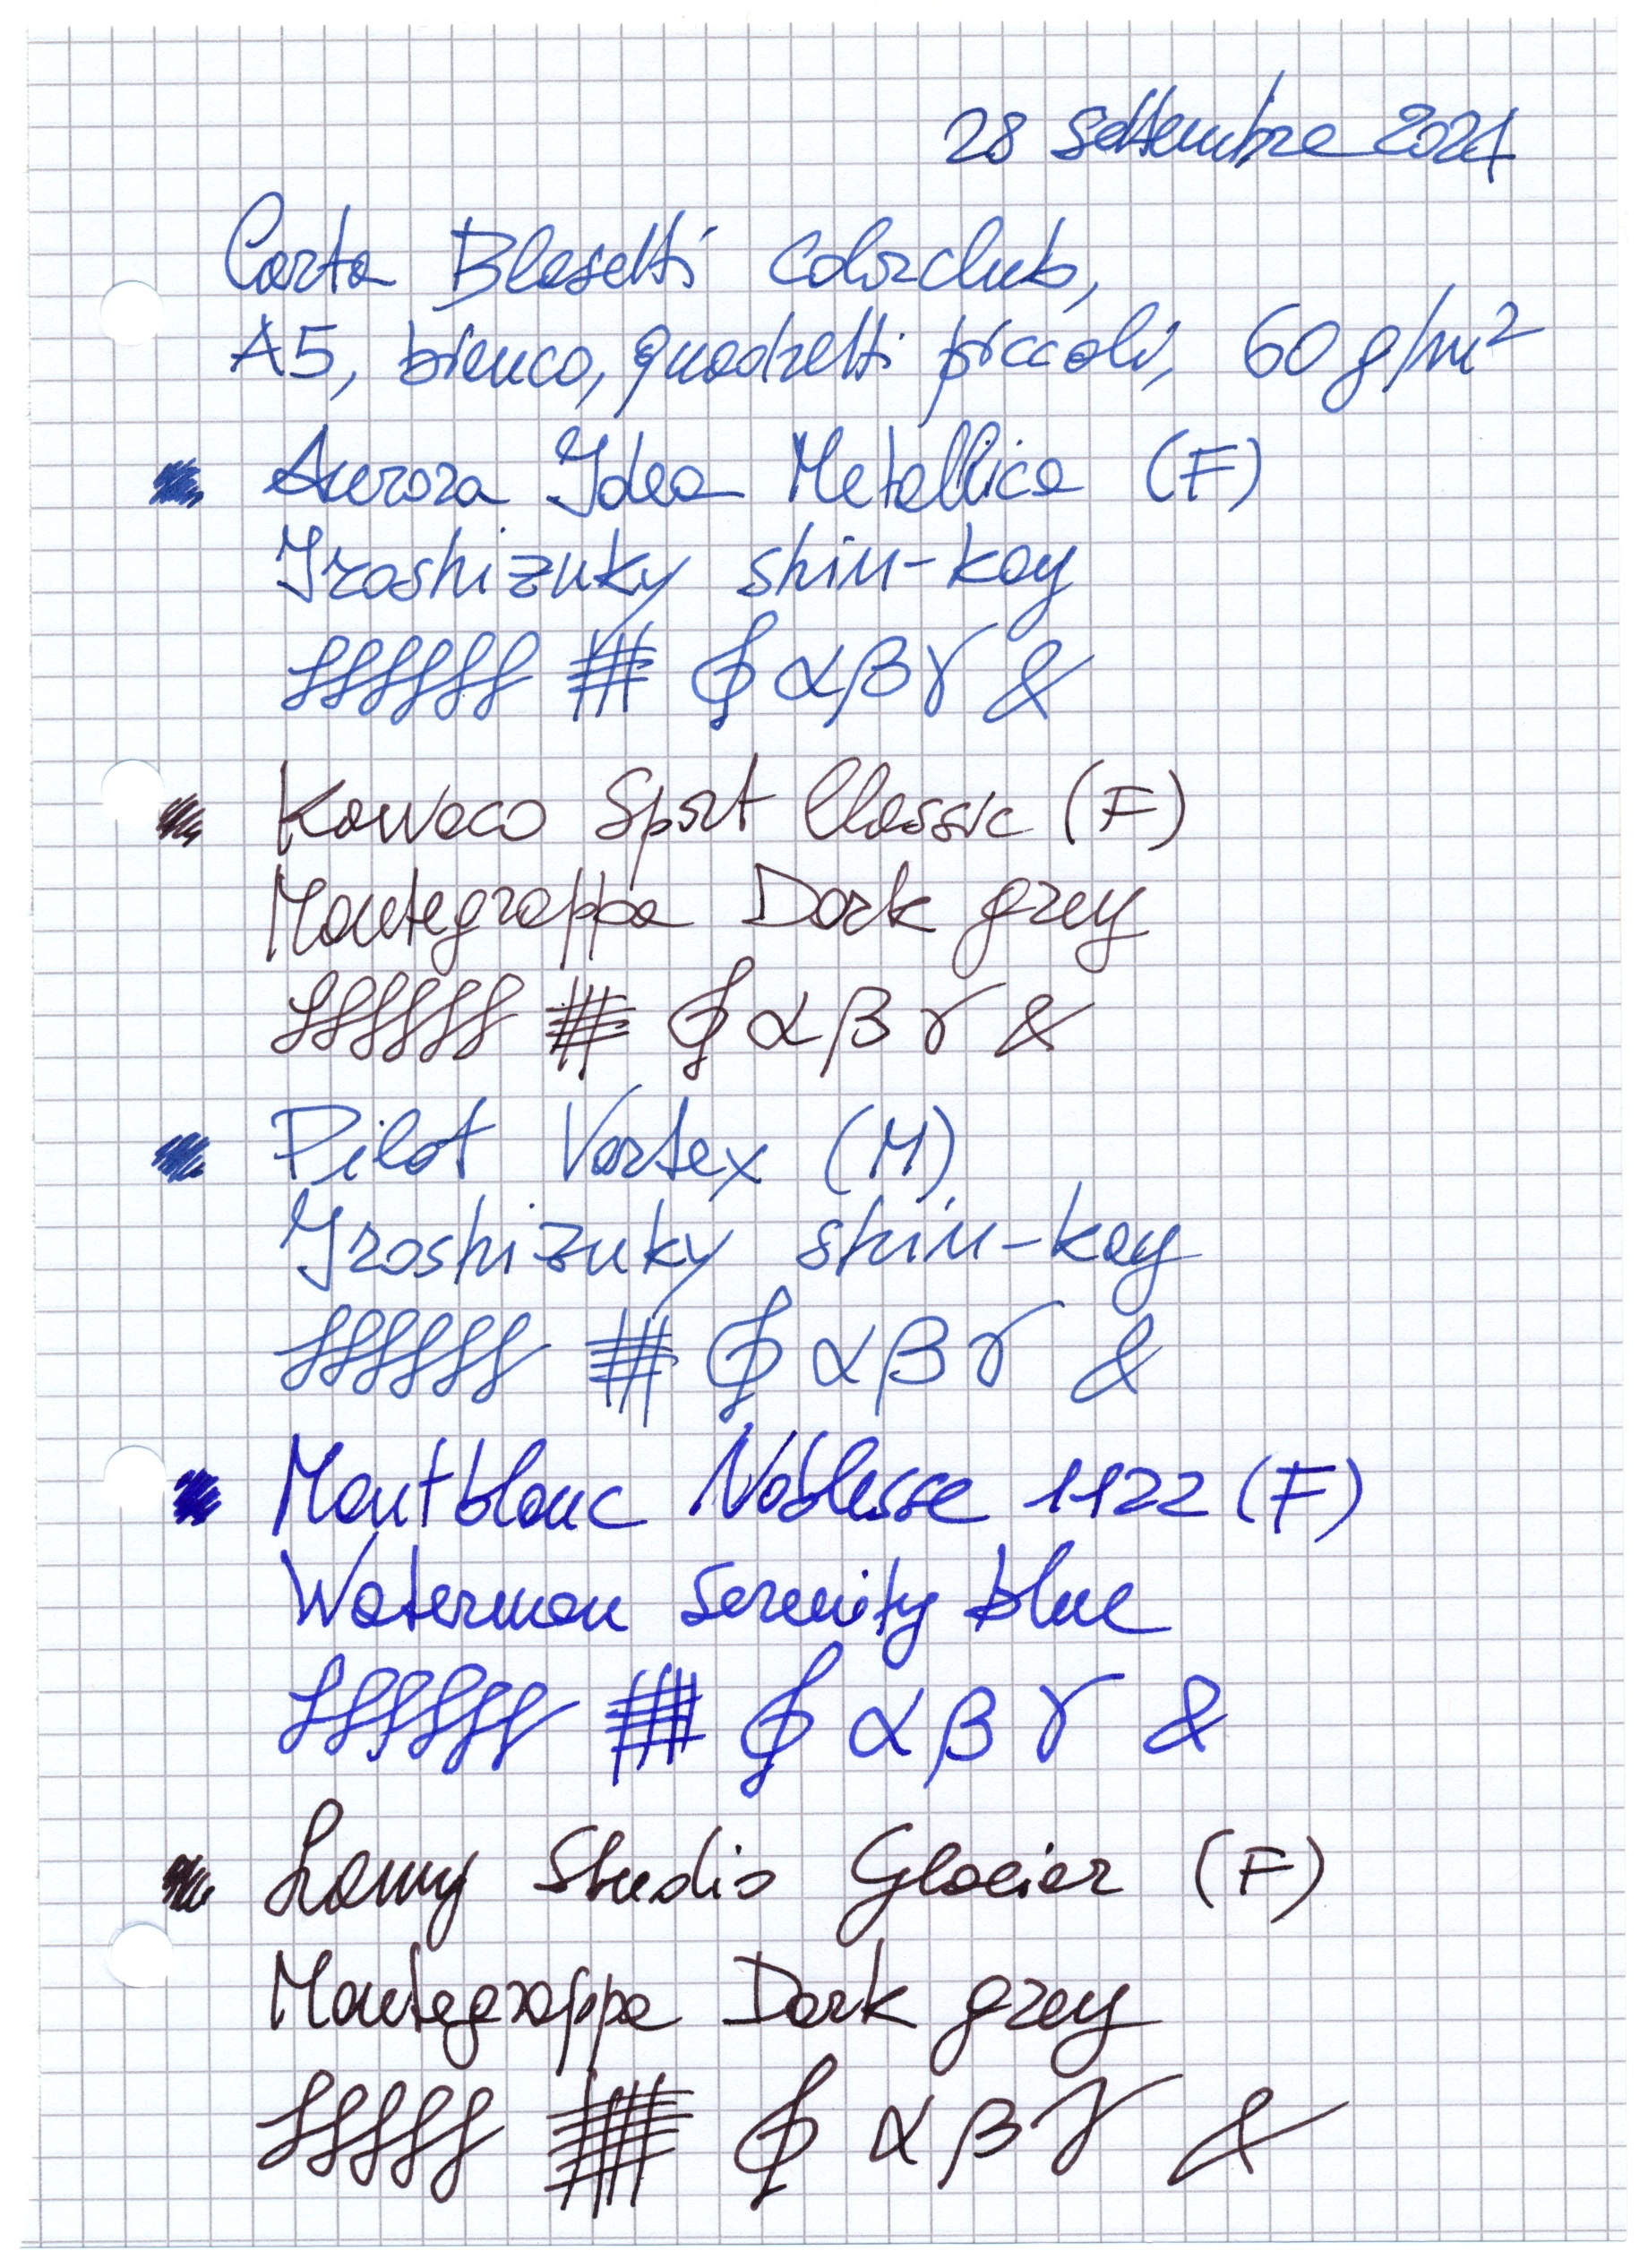 28 settembre 2021
Carta Blasetti Colorclub,
A5, bianco, quadretti piccoli, 60 g/m²
Aurora Idea Metallica (F)
Iroshizuky shin-kay
# α β γ &
Kaweco Sport Classic (F)
Montegrappa Dark grey
# α β γ &
Pilot Vortex (M)
Iroshizuky shin-kay
# α β γ &
Montblanc Noblesse 1122 (F)
Waterman Serenity blue
# α β γ &
Lamy Studio Glacier (F)
Montegrappa Dark grey
# α β γ &